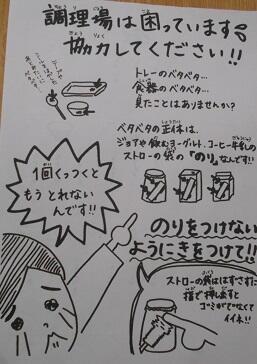 調理場は困っています
協力してください!!
トレーのベタベタ…
食器のベタベタ…
見たことはありませんか?
ベタベタの正体は、
ジョアや飲むヨーグルト、コーヒー牛乳の
ストローの袋の「のり」なんです!!
1回くっつくと
もうとれない
んです!!
のりをつけない
ようにきをつけて!!
ストローの袋ははずさずに
指で押しますと
ゴミがでなくて
イイネ!!